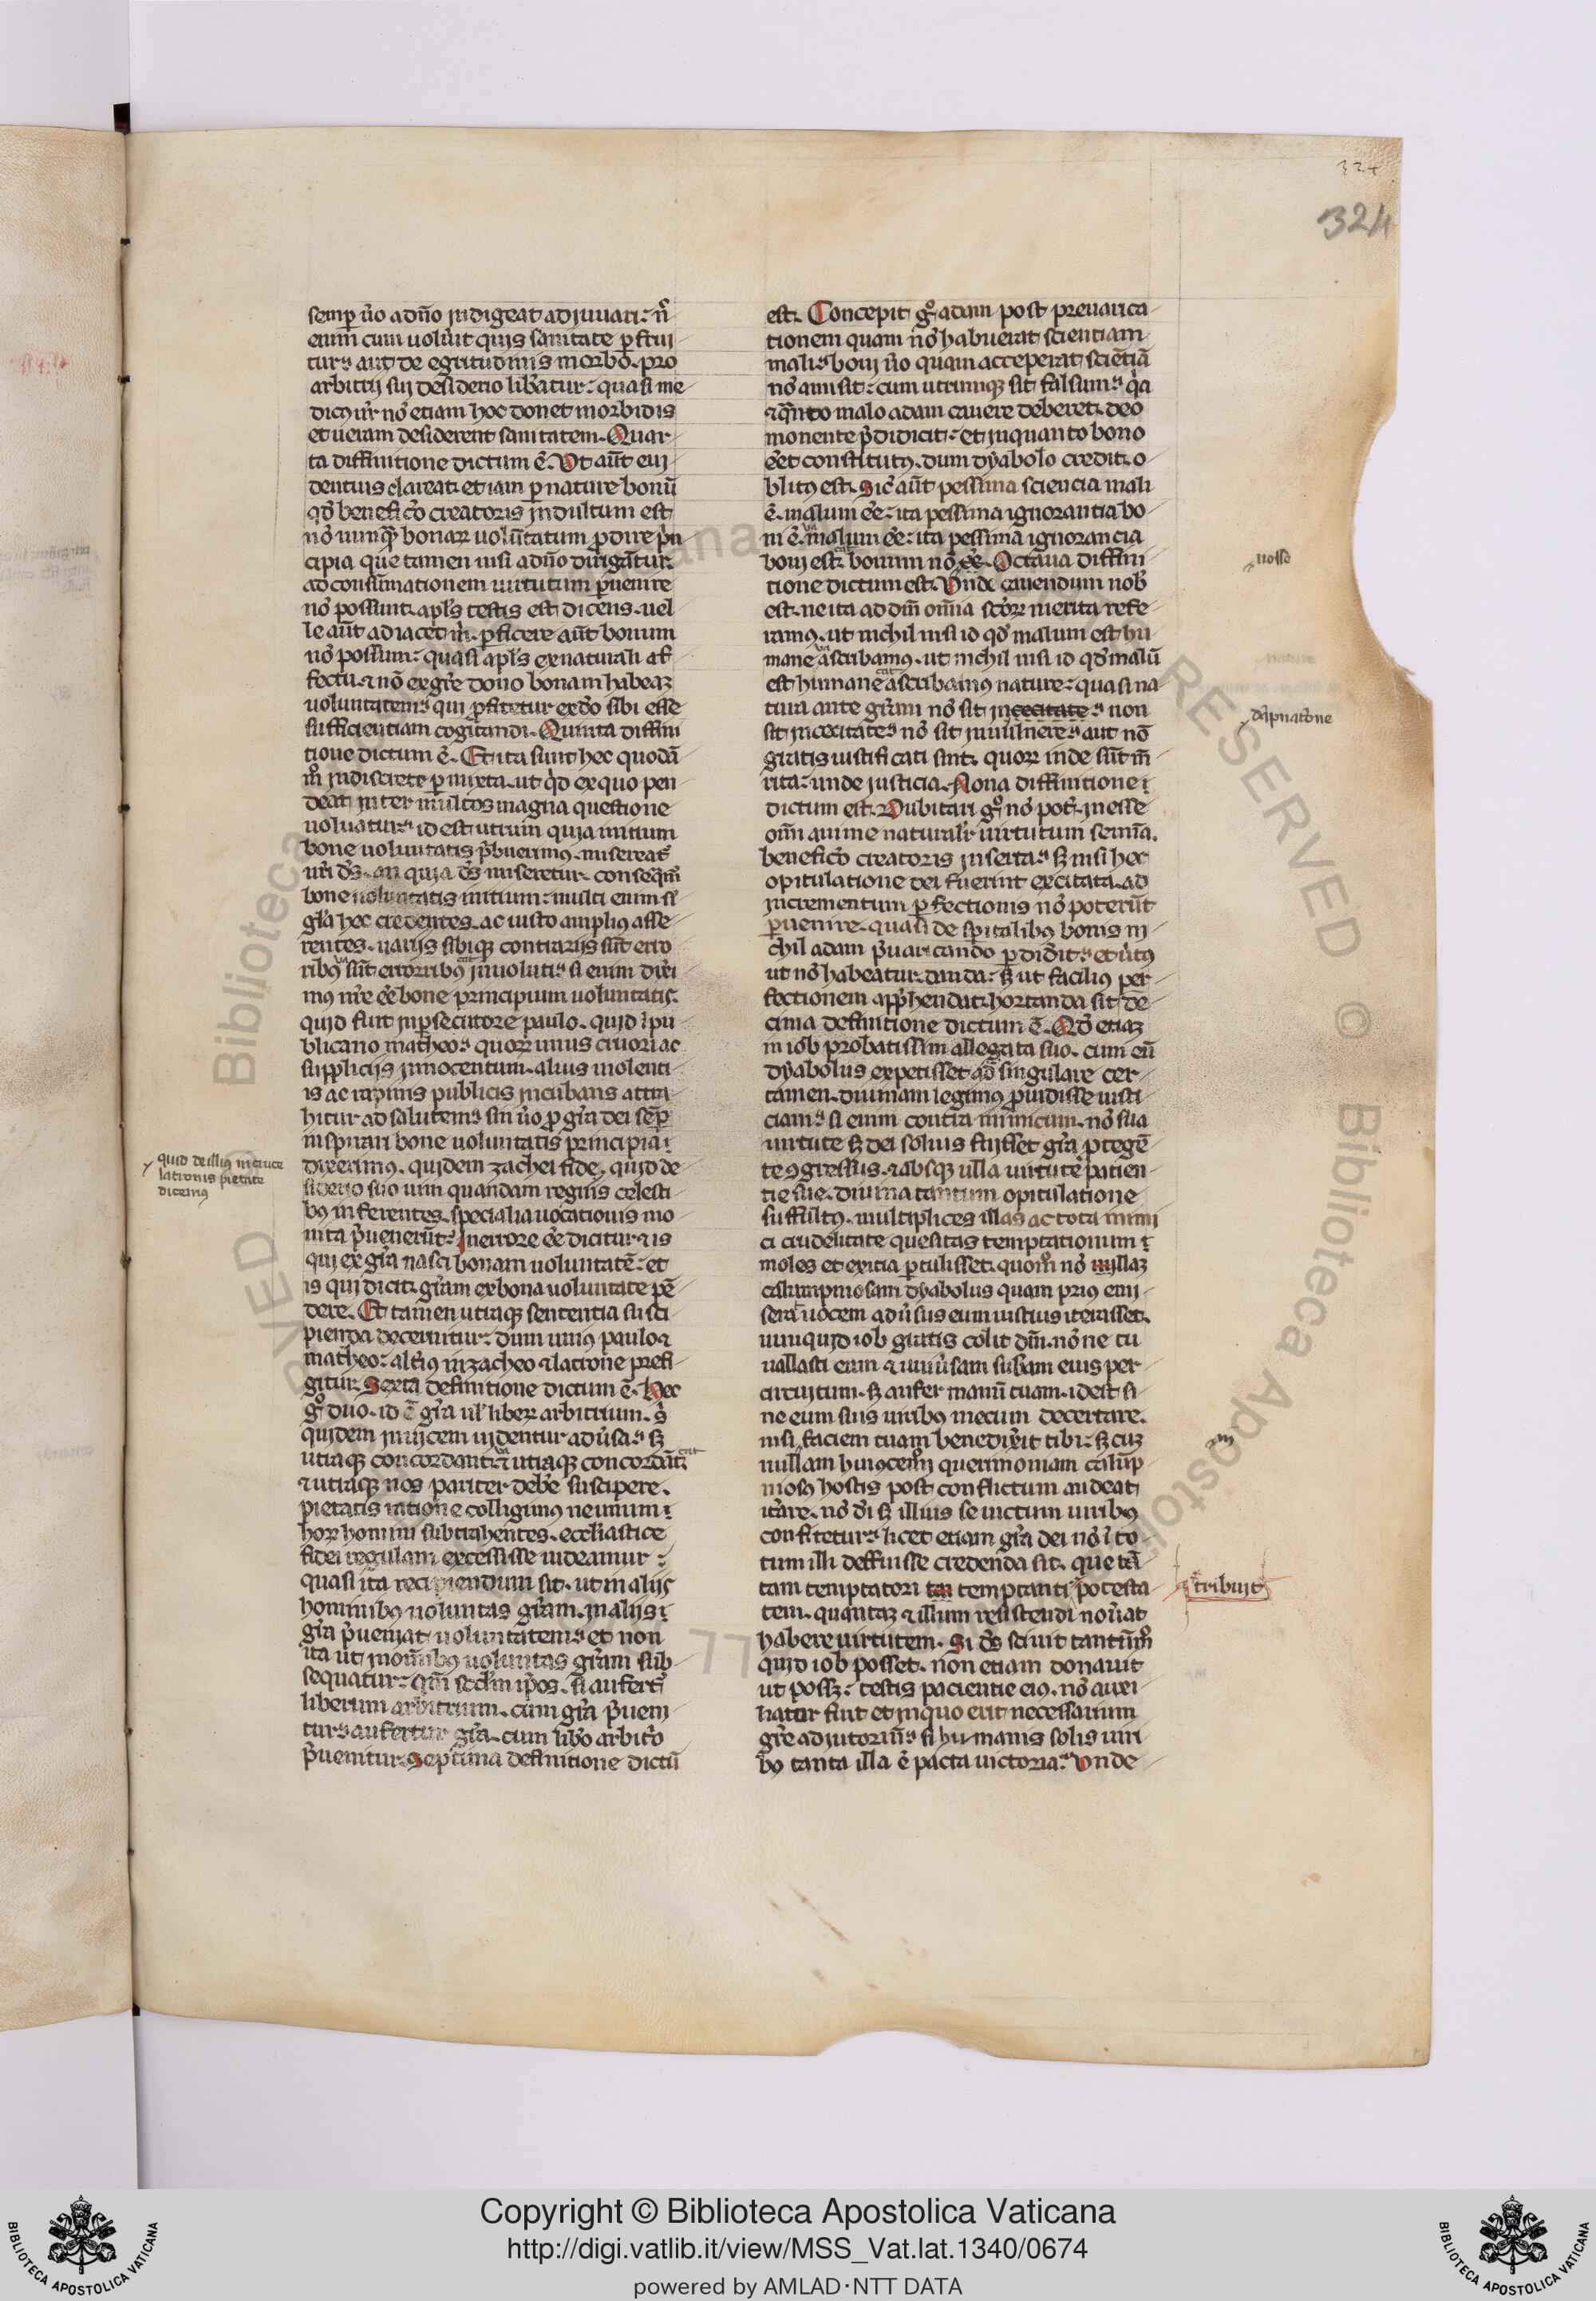 324
324
semp̲ ūo adn̄o indigeat adiuuari: n̄
enim cum uolūit quis sanitate p̲frui
tur aut de egritudinis morbo pro
arbitrii sui desiderio lib̄atur: quasi me
dicꝰ nr̄ nō etiam hoc donet morbidis
et ueram desiderent sanitatem. Quar
ta diffinitione dictum ē. Ut aūt eui
dentius clareat etiam p̲ nature bonū
qd̄ beneficō creatoris indultum est
nō nunq̄ bonaꝝ uolūtatum p̲dire p̄n
cipia que tamen nisi adn̄o dirigātur
ad consūmationem uirtutum p̲uenire
nō possunt. apl̄s testis est dicens. uel
le aūt adiacet m̄. p̲ficere aūt bonum
nō possum: quasi apl̄s ex naturali af
fectu ⁊ nō ex gr̄e dono bonam habeaꝫ
uoluntatem qui p̲fitetur ex dō sibi esse
sufficientiam cogitandi. Quinta diffini
tione dictum ē. Et ita sunt hec quodā
mō indiscrete p̲mixta. ut qd̄ ex quo pen
deat inter multos magna questione
uoluatur id est utrum quia initium
bone uoluntatis p̄buerimꝰ. misereat
nr̄i ds̄. an quia ds̄ miseretur. conseqm̄
bone uoluntatis initium: multi enim si
gl̄a hec credentes. ac iusto ampliꝰ asse
rentes. uariis sibiqꝫ contrariis sūt erro
ribꝰ sūt erroribꝰ inuoluti si enim dix̄i
mꝰ nr̄e ēe bone principium uoluntatis.
quid fuit in p̲secutore paulo. quid ī pu
blicano matheo quoꝝ unus cruori ac
suppliciis innocentum. alius uiolenti
is ac rapinis publicis incubans attra
hitur ad salutem sin ūo p̲ gr̄a dei semp̲
inspirari bone uoluntatis principia
quid de illiꝰ in cruce
latronis pietate
dicemꝰ
dixerimꝰ. quidem zachei fide. quid de
siderio suo uim quandam regnis celesti
bꝰ inferentes. specialia uocationis mo
nita p̄uenerūt. In errore ēe dicitur ⁊ is
qui ex gr̄a nasci bonam uoluntatē: et
is qui dicit gr̄am ex bona uoluntate pē
dere. Et tamen utraqꝫ sententia susci
pienda decernitur: dum unꝰ paulo ⁊
matheo: alt̄iꝰ in zacheo ⁊ latrone prefi
gitur. Sexta definitione dictum ē. Hec
gͦ duo. id ē gr̄a ul̄ liberꝝ arbitrium. s̄
quidem inuicem uidentur adūsa sꝫ
utraqꝫ concordant ⁊ utraqꝫ concordāt
⁊ utraqꝫ nos pariter debē suscipere.
pietatis ratione colligimꝰ ne unum
hoꝝ homini subtrahentes. eccliastice
fidei regulam excessisse uideamur:
quasi ita recipiendum sit. ut in aliis
hominibꝰ uoluntas gr̄am. in aliis
gr̄a p̄ueniat uoluntatem et non
ita ut in om̄ibꝰ uoluntas gr̄am sub
sequatur: qm̄ scd̄m ip̄os. si aufert̄
liberum arbitrium. cum gr̄a p̄ueni
tur aufertur gr̄a. cum lib̄o arbitrō
p̄uenitur. Septima definitione dictū
est. Concepit gͦ adam post preuarica
tionem quam nō habuerat scientiam
mali boni ūo quam acceperat sciētiā
nō amisit: cum utrumqꝫ sit falsum qa
⁊ qn̄to malo adam cauere deberet. deo
monente p̄didicit: et inquanto bono
ēet constitutꝰ. dum dyabolo credit. o
blitꝰ est. Sic̄ aūt pessima sciencia mali
ē. malum ēe: ita pessima ignorantia bo
ni ē. malum ēe: ita pessima ignorancia
boni est. bonum nō ēe. Octaua diffini
nosse
tione dictum est. Unde cauendum nob̄
est. ne ita ad dm̄ omīa sc̄oꝝ merita refe
ramꝰ. ut nichil nisi id qd̄ malum est hu
mane ascribamꝰ. ut nichil nisi id qd̄ malū
est humane ascribamꝰ nature: quasi na
tura ante gr̄am nō sit in cecitate non
dāpnatōne
sit in cecitate nō sit in uulnere aut nō
gratis iustificati sint. quoꝝ inde sūt m̄
rita: unde iusticia. Nona diffinitione
dictum est. Dubitari gͦ nō pot̄. inesse
om̄i anime naturalr̄ uirtutum semīa.
beneficō creatoris inserta sꝫ nisi hec
opitulatione dei fuerint excitata. ad
incrementum p̲fectionis nō poterūt
p̲uenire. quasi de sp̄italibꝰ bonis ni
chil adam p̄uaricando p̲didit et ūtꝰ
ut nō habeatur danda: sꝫ ut facilius per
fectionem app̄hendat: hortanda sit. de
cima definitione dictum ē. Qd̄ etiaꝫ
in iob probatissim allegata suo. cum eū
dyabolus expetisset ad singulare cer
tamen. diuinam legimꝰ p̲uidisse iusti
ciam si enim contra inimicum. nō sua
uirtute sꝫ dei solius fuisset gr̄a p̲tegē
te ꝯgressus. ⁊ absqꝫ ulla uirtute patien
tie sue. diuina tantum opitulatione
suffultꝰ. multiplices illas ac tota inimi
ci crudelitate quesitas temptationum
moles et exitia p̲tulisset. quom̄ nō nullaꝫ
calumpniosam dyabolus quam prius emi
serat uocem adūsus eum iustius iterasset.
nunquid iob gratis colit dm̄. nōne tu
uallasti eum ⁊ uniūsam subām eius per
circuitum. sꝫ aufer manū tuam. id est si
ne eum suis uiribꝰ mecum decertare.
nisi faciem tuam benedixit tibi: sꝫ cuꝫ
nullam huiꝰcemōi querimoniam calūp
niosꝰ hostis post conflictum audeat
itāre. nō dī sꝫ illius se uictum uiribꝰ
confitetur licet etiam gr̄a dei nō ī to
tum illi deffuisse credenda sit. que tā
tam temptatori temptanti potesta
tribuit
tem. quantaꝫ ⁊ illum resistendi noūat
habere uirtutem. Si ds̄ sciuit tantūm̄
quid iob posset. non etiam donauit
ut possꝫ: testis paciencie eiꝰ. nō auxi
liator fuit et in quo erit necessarium
gr̄e adiutoriū si humanis solis uiri
bꝰ tanta illa ē pacta uictoria. Unde
Copyright © Biblioteca Apostolica Vaticana
http://digi.vatlib.it/view/MSS_Vat.lat.1340/0674
powered by AMLAD·NTT DATA
BIBLIOTECA APOSTOLICA VATICANA
BIBLIOTECA APOSTOLICA VATICANA